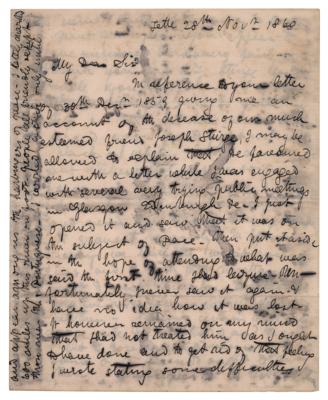 Tette 28th Novr 1860
My Dear Sir
In reference to your letter
of 30th Decr 1859 giving me an
account of the decease of our much
esteemed friend Joseph Sturge, I may be
allowed to explain that He favoured
me with a letter while I was engaged
with several very trying public meetings
in Glasgow Edinburgh &c. I just
opened it and saw that it was on
the subject of Peace. Then put it aside
in the hope of attending to what was
said the first time I had leisure. Un-
fortunately I never saw it again &
have no idea how it was lost
It however remained on my mind
that I had not treated him as I ought
to have done and to get rid of that feeling
I wrote stating some difficulties